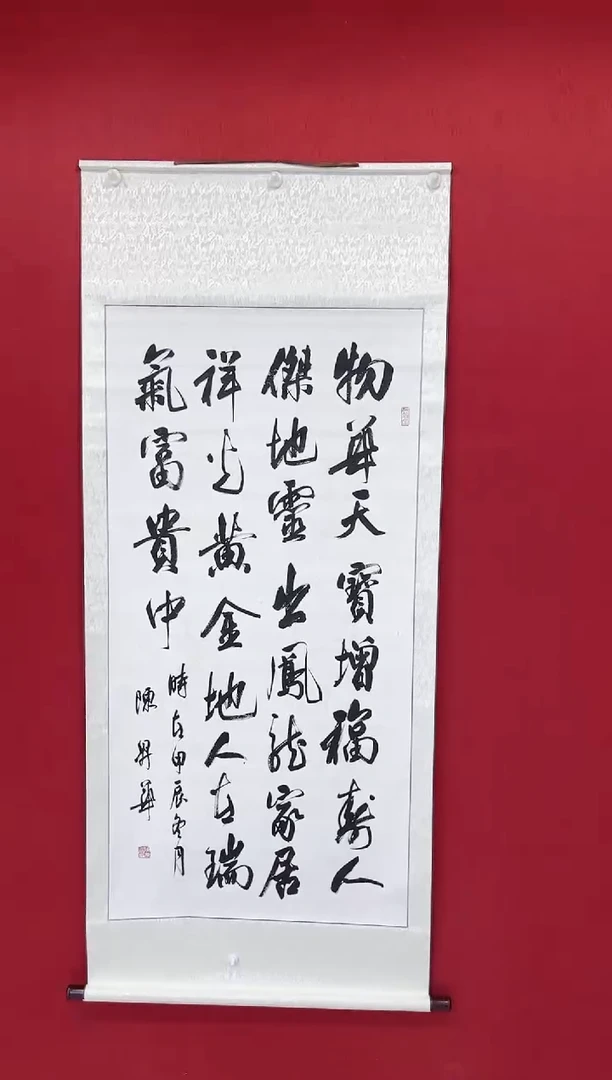 物華天寶增福壽人
傑地靈出鳳龍家居
祥光黃金地人在瑞
氣富貴中
時在甲辰冬月
陳昇華